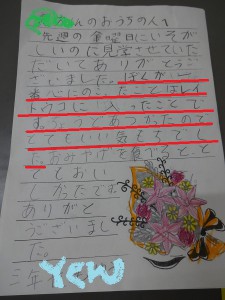 さんのおうちの人
先週の金曜日にいそが
しいのに見学させていた
だいてありがとうご
ざいました。ぼくが一
番心にのこったことはレイ
トウコに入ったことで
す。ちょうどあつかったので
とてもいい気もちでし
た。おみやげを食べると、と
てもおい
しかったです。
ありがと
うございまし
た。
三年
Yew